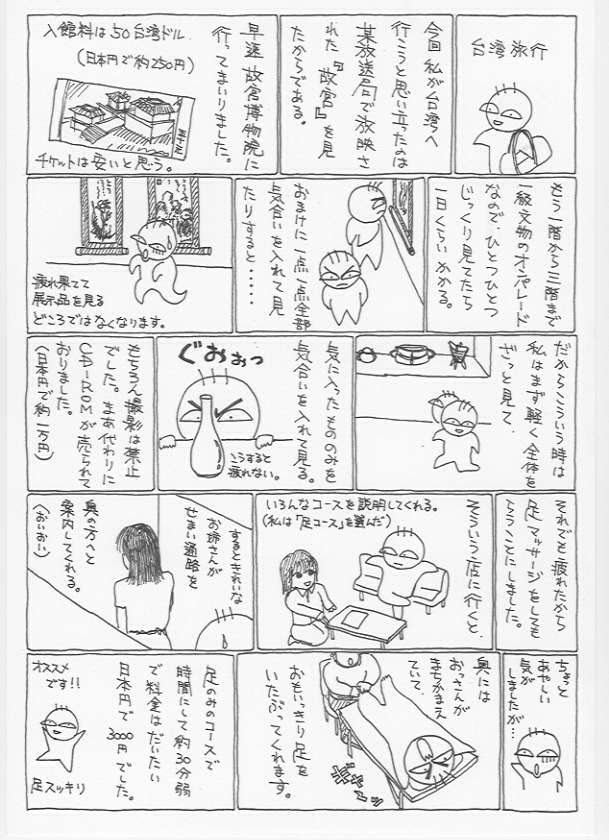 台湾旅行
今回私が台湾へ
行こうと思い立ったのは
某放送局で放映さ
れた『故宮』を見
たからである。
早速故宮博物院に
行ってまいりました。
入館料は50台湾ドル
(日本円で約250円)
チケットは安いと思う。
もう一階から三階まで
一級文物のオンパレード
なので、ひとつひとつ
じっくり見てたら
一日くらいかかる。
おまけに一点一点全部
気合いを入れて見
たりすると・・・・・
疲れ果てて
展示品を見る
どころではなくなります。
だからこういう時は
私はまず軽く全体を
ざっと見て、
気に入ったもののみを
気合いを入れて見る。
ぐおぉっ
こうすると
疲れない。
もちろん撮影は禁止
でした。まあ代わりに
CD-ROMが売られて
おりました。
(日本円で約一万円)
それでも疲れたから
足マッサージをしても
らうことにしました。
そういう店に行くと、
いろんなコースを説明してくれる。
(私は「足コース」を選んだ)
するときれいな
お姉さんが
せまい通路を
奥の方へと
案内してくれる。
(おいおい)
ちょっと
あやしい
気が
しましたが…
奥には
おっさんが
まちかまえ
ていて、
おもいっきり足を
いたぶってくれます。
足のみのコースで
時間にして約30分弱
で料金はだいたい
日本円で3000円でした。
オススメ
です!!
足スッキリ